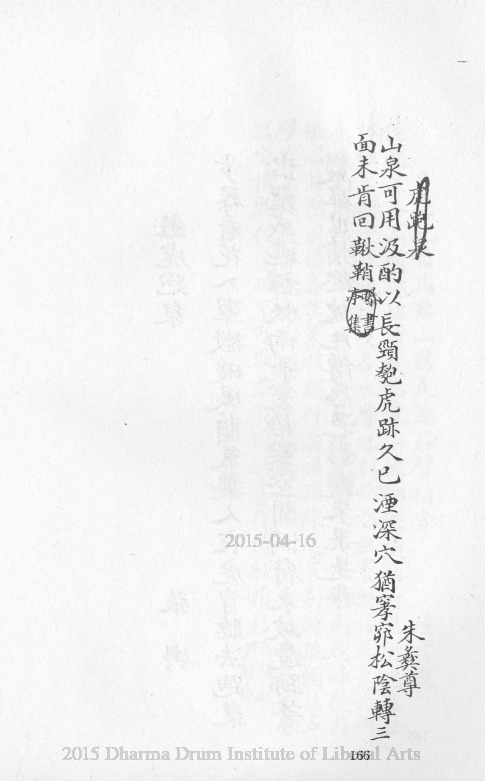 虎跑泉
朱彝尊
山泉可用汲酌以長頸匏虎跡久已湮深穴猶窙窌松陰轉三
面未肯回鞦鞘曝書
亭集
2015-04-16
166
2015 Dharma Drum Institute of Liberal Arts